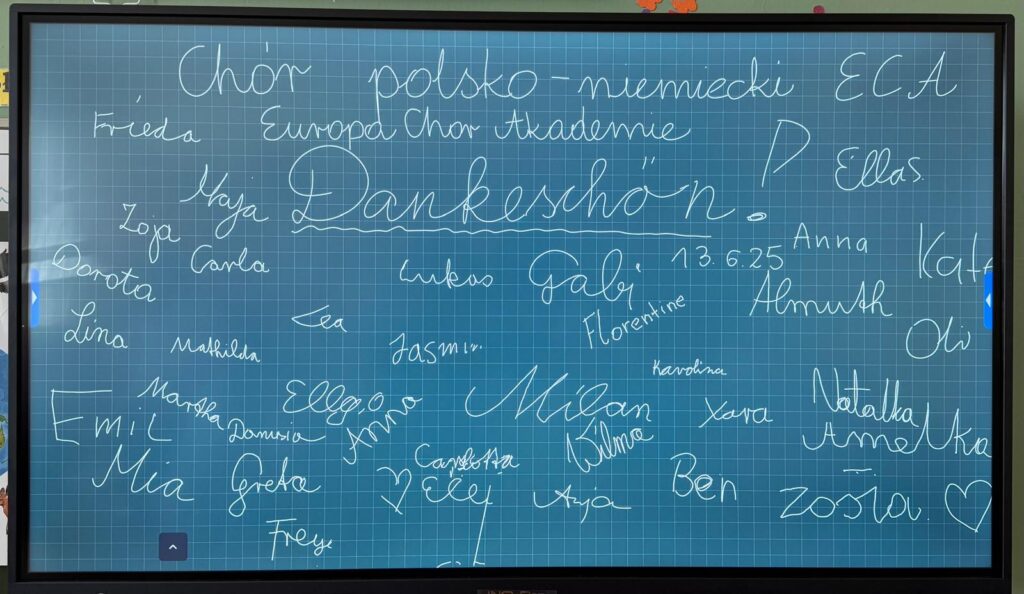 Chór polsko-niemiecki ECA
Frieda Europa Chor Akademie
Ellas
Maja Dankeschön.
Zoja
Anna
Carla 13.6.25
Dorota Lukas Gabi
Almuth
Lina Lea Florentine
Oli
Mathilda Jasmin
Karolina
Martha Natalka
Emil Milan Xara
Danusia Anna Wilma
Mia Greta Carlotta
Elly Anja Ben Zosia